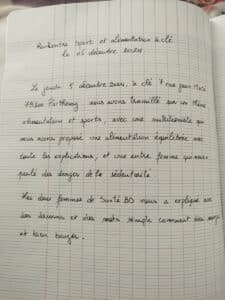 Rencontre Sport et alimentation à clé
le 05 décembre 2024
Le jeudi 5 décembre 2024, à clé 7 rue
79200 Parthenay nous avons travaillé sur un thème
alimentation et sports, avec une nutritionniste qui
nous avons proposé une alimentation équilibrée avec
toute les explications, et une autre femme qui nous
parle des danger de la sédentarité
Ses deux femmes de Santé BD nous a expliqué avec
des dessins et des mots simple comment bien
et bien bouger.